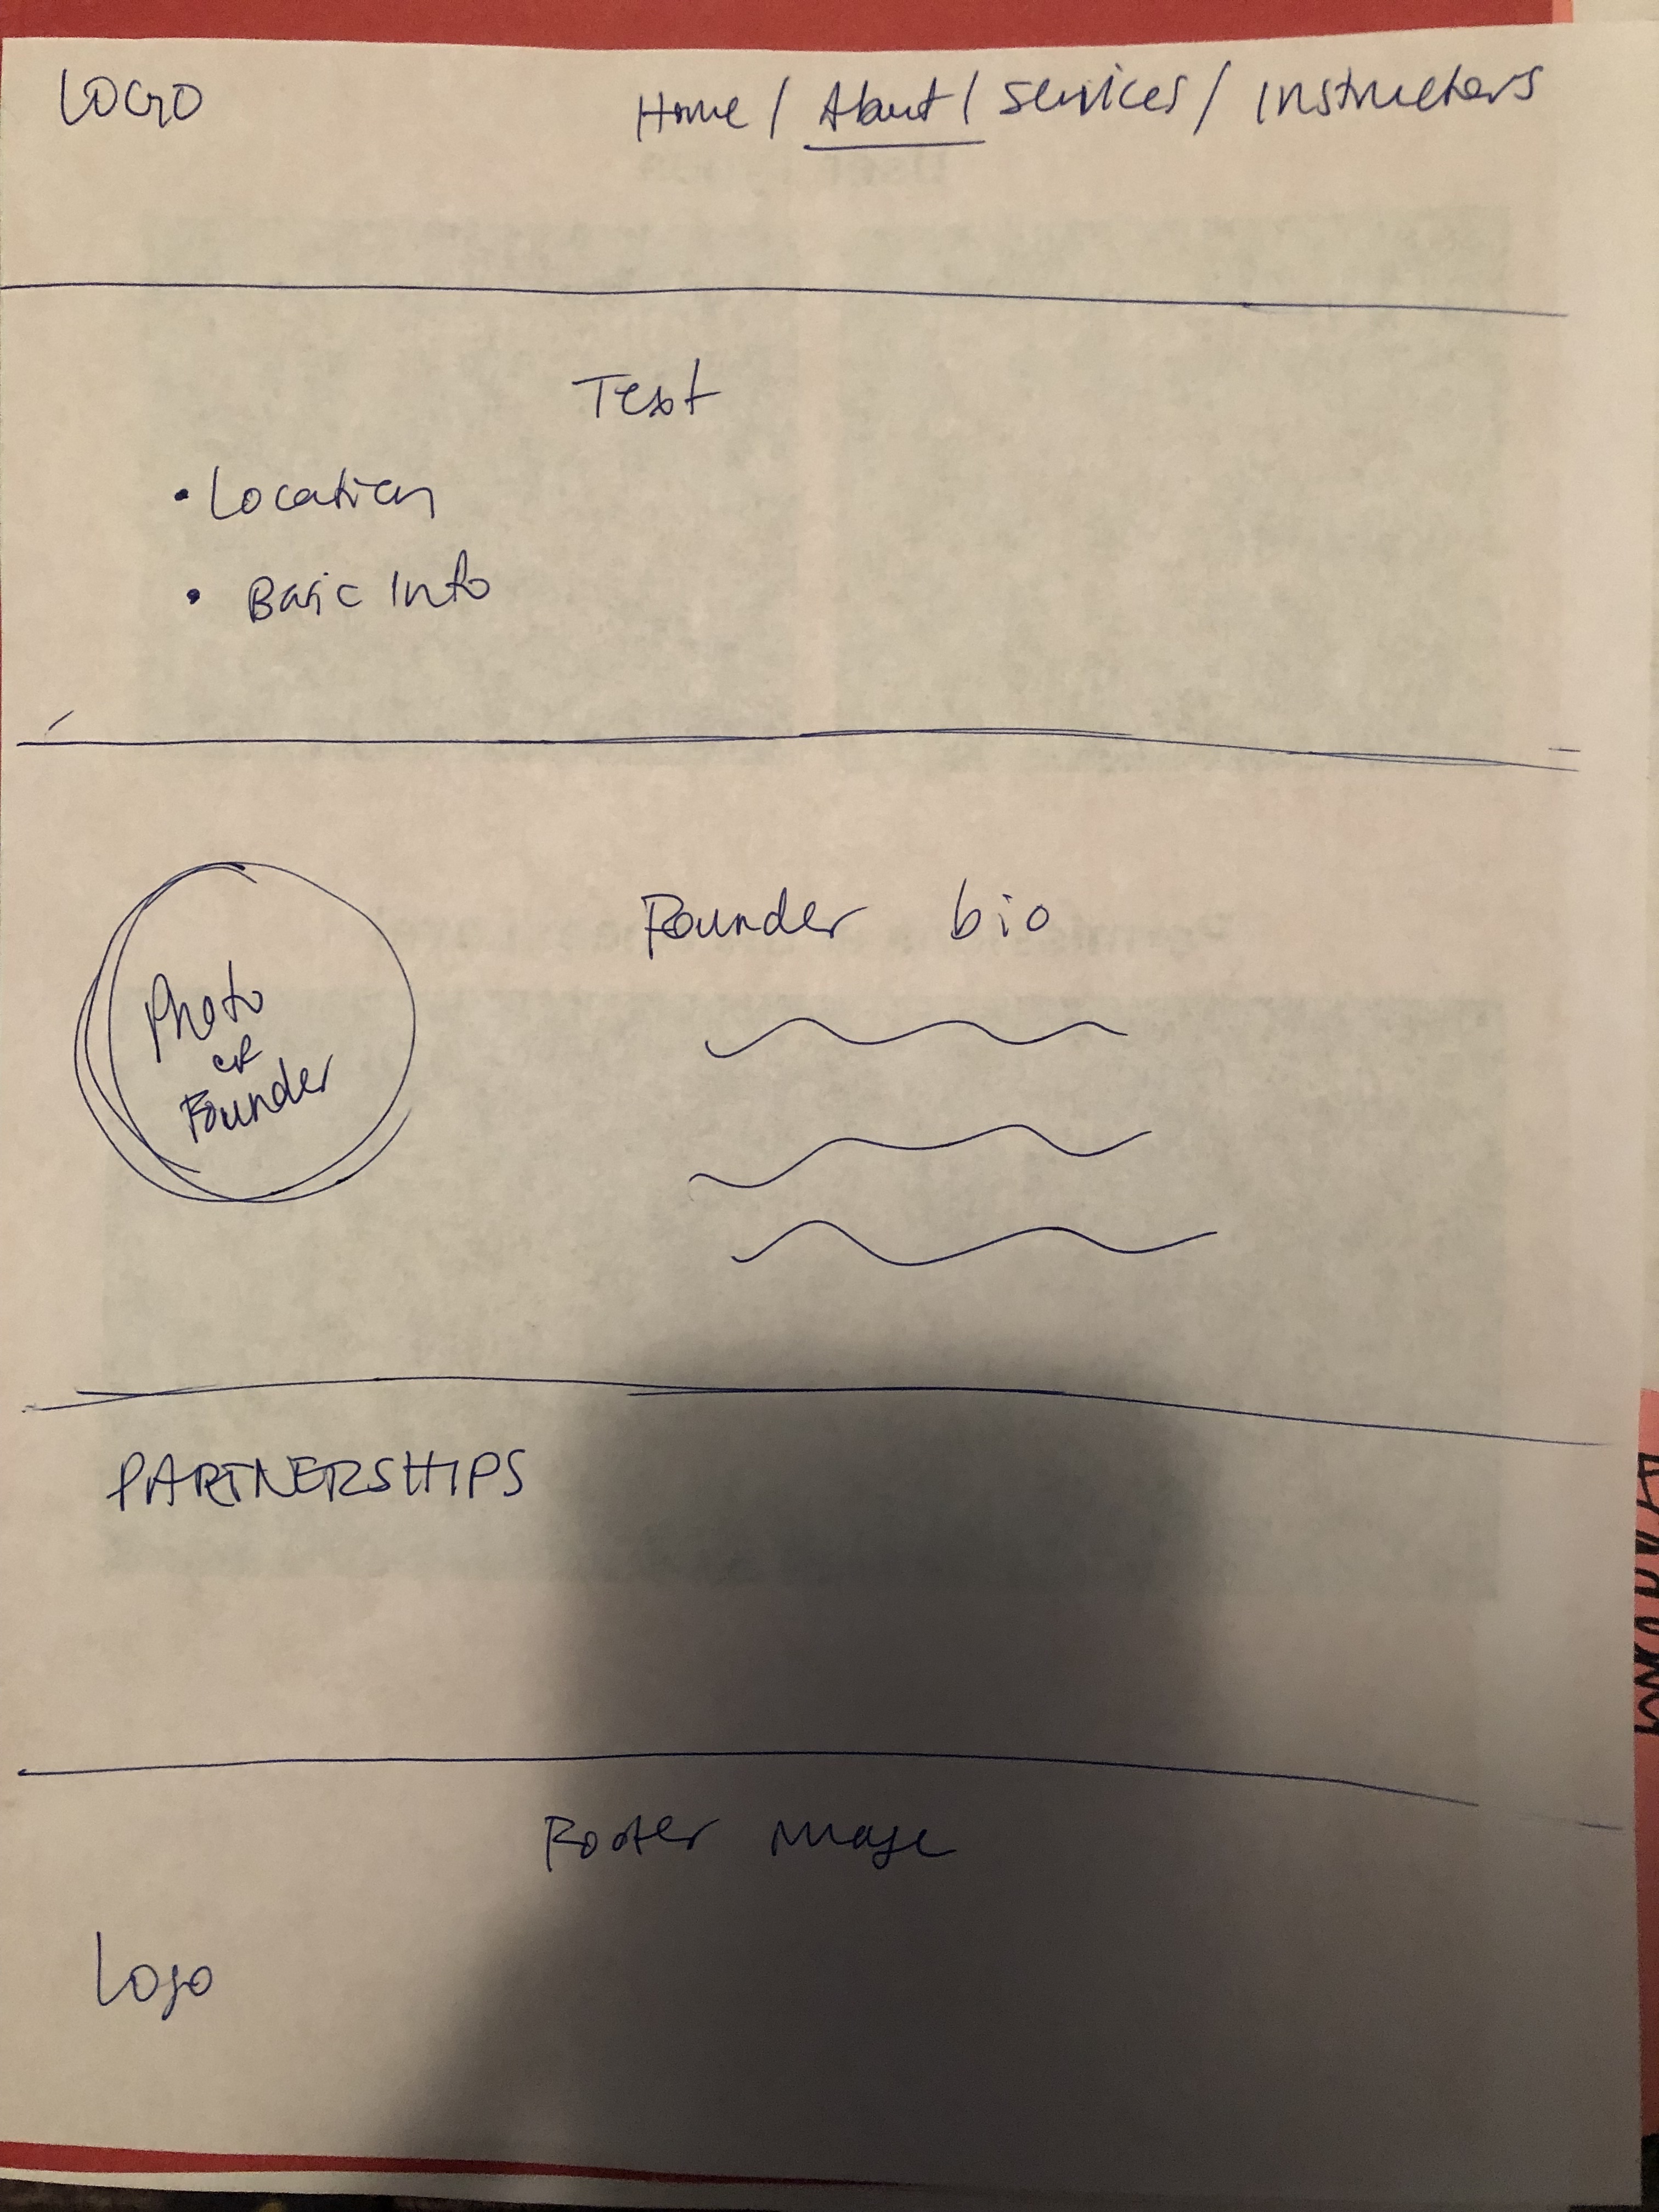 LOGO
Home / About / Services / Instructors
Text
• Location
• Basic Info
Founder bio
Photo
of
Founder
PARTNERSHIPS
Footer image
Logo